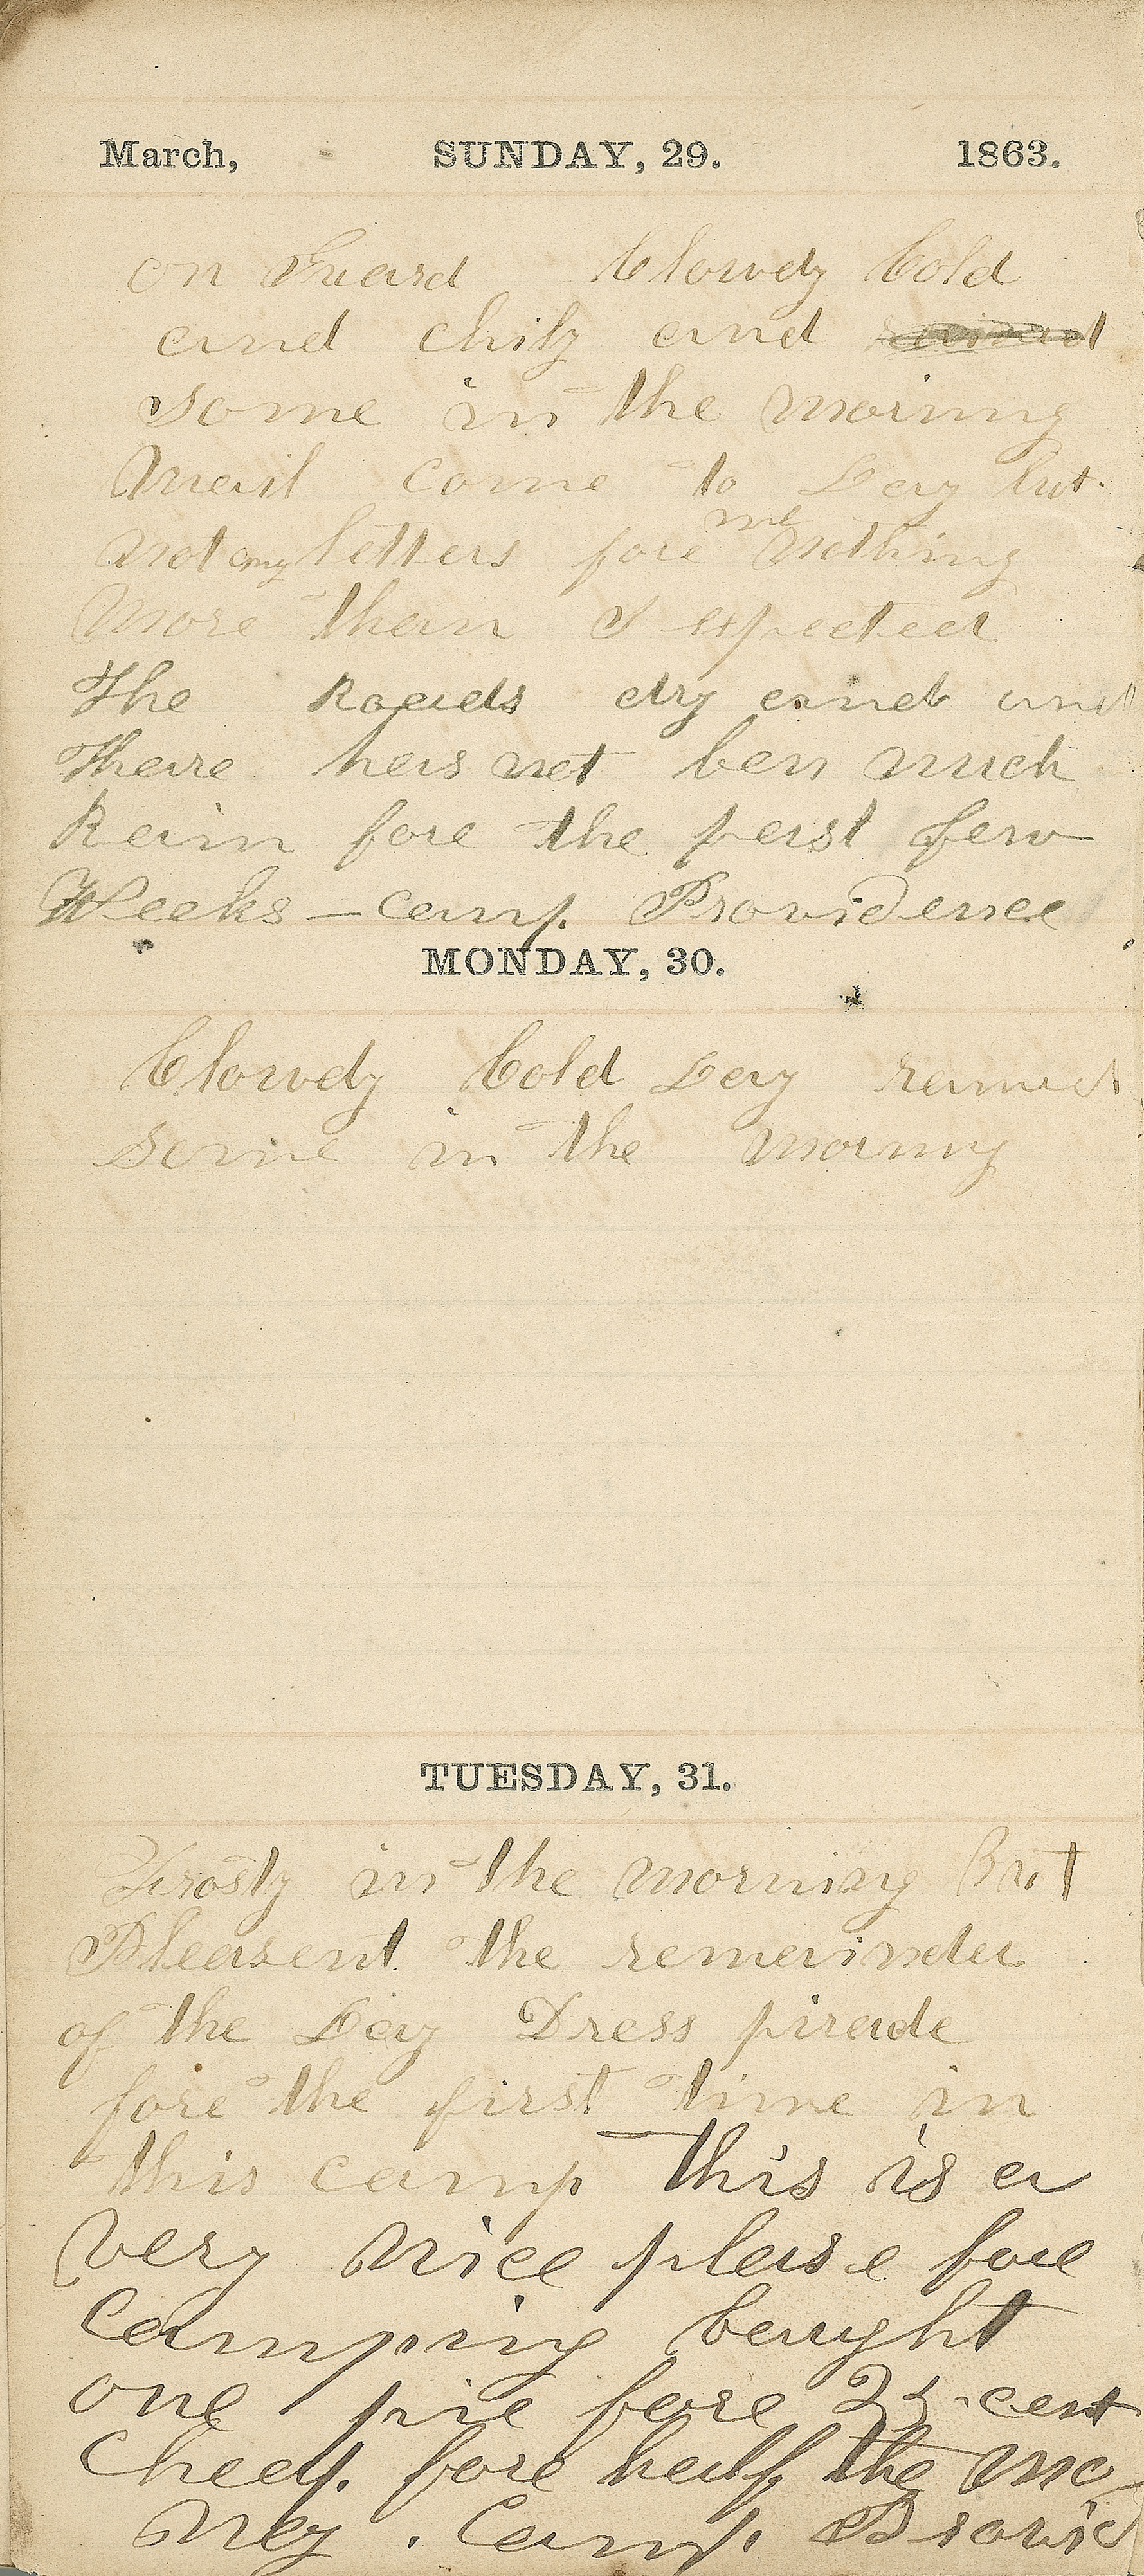 March, SUNDAY, 29. 1863.
on Guard Clowdy Cold
and chily and
some in the morning
Mail come to Day but
not any letters fore me nothing
More than I expected
The Roads dry and and
Theire has not ben much
Rain fore the past few
Weeks — camp Providence
MONDAY, 30.
Clowdy Cold Day rained
some in the morning
TUESDAY, 31.
Frosty in the morning But
Pleasent the remainder
of the Day Dress pirade
fore the first time in
this camp this is a
very nice plase fore
Camping bought
one pie fore 25 cent
Cheap. fore half the mo
ney. Camp. Provid